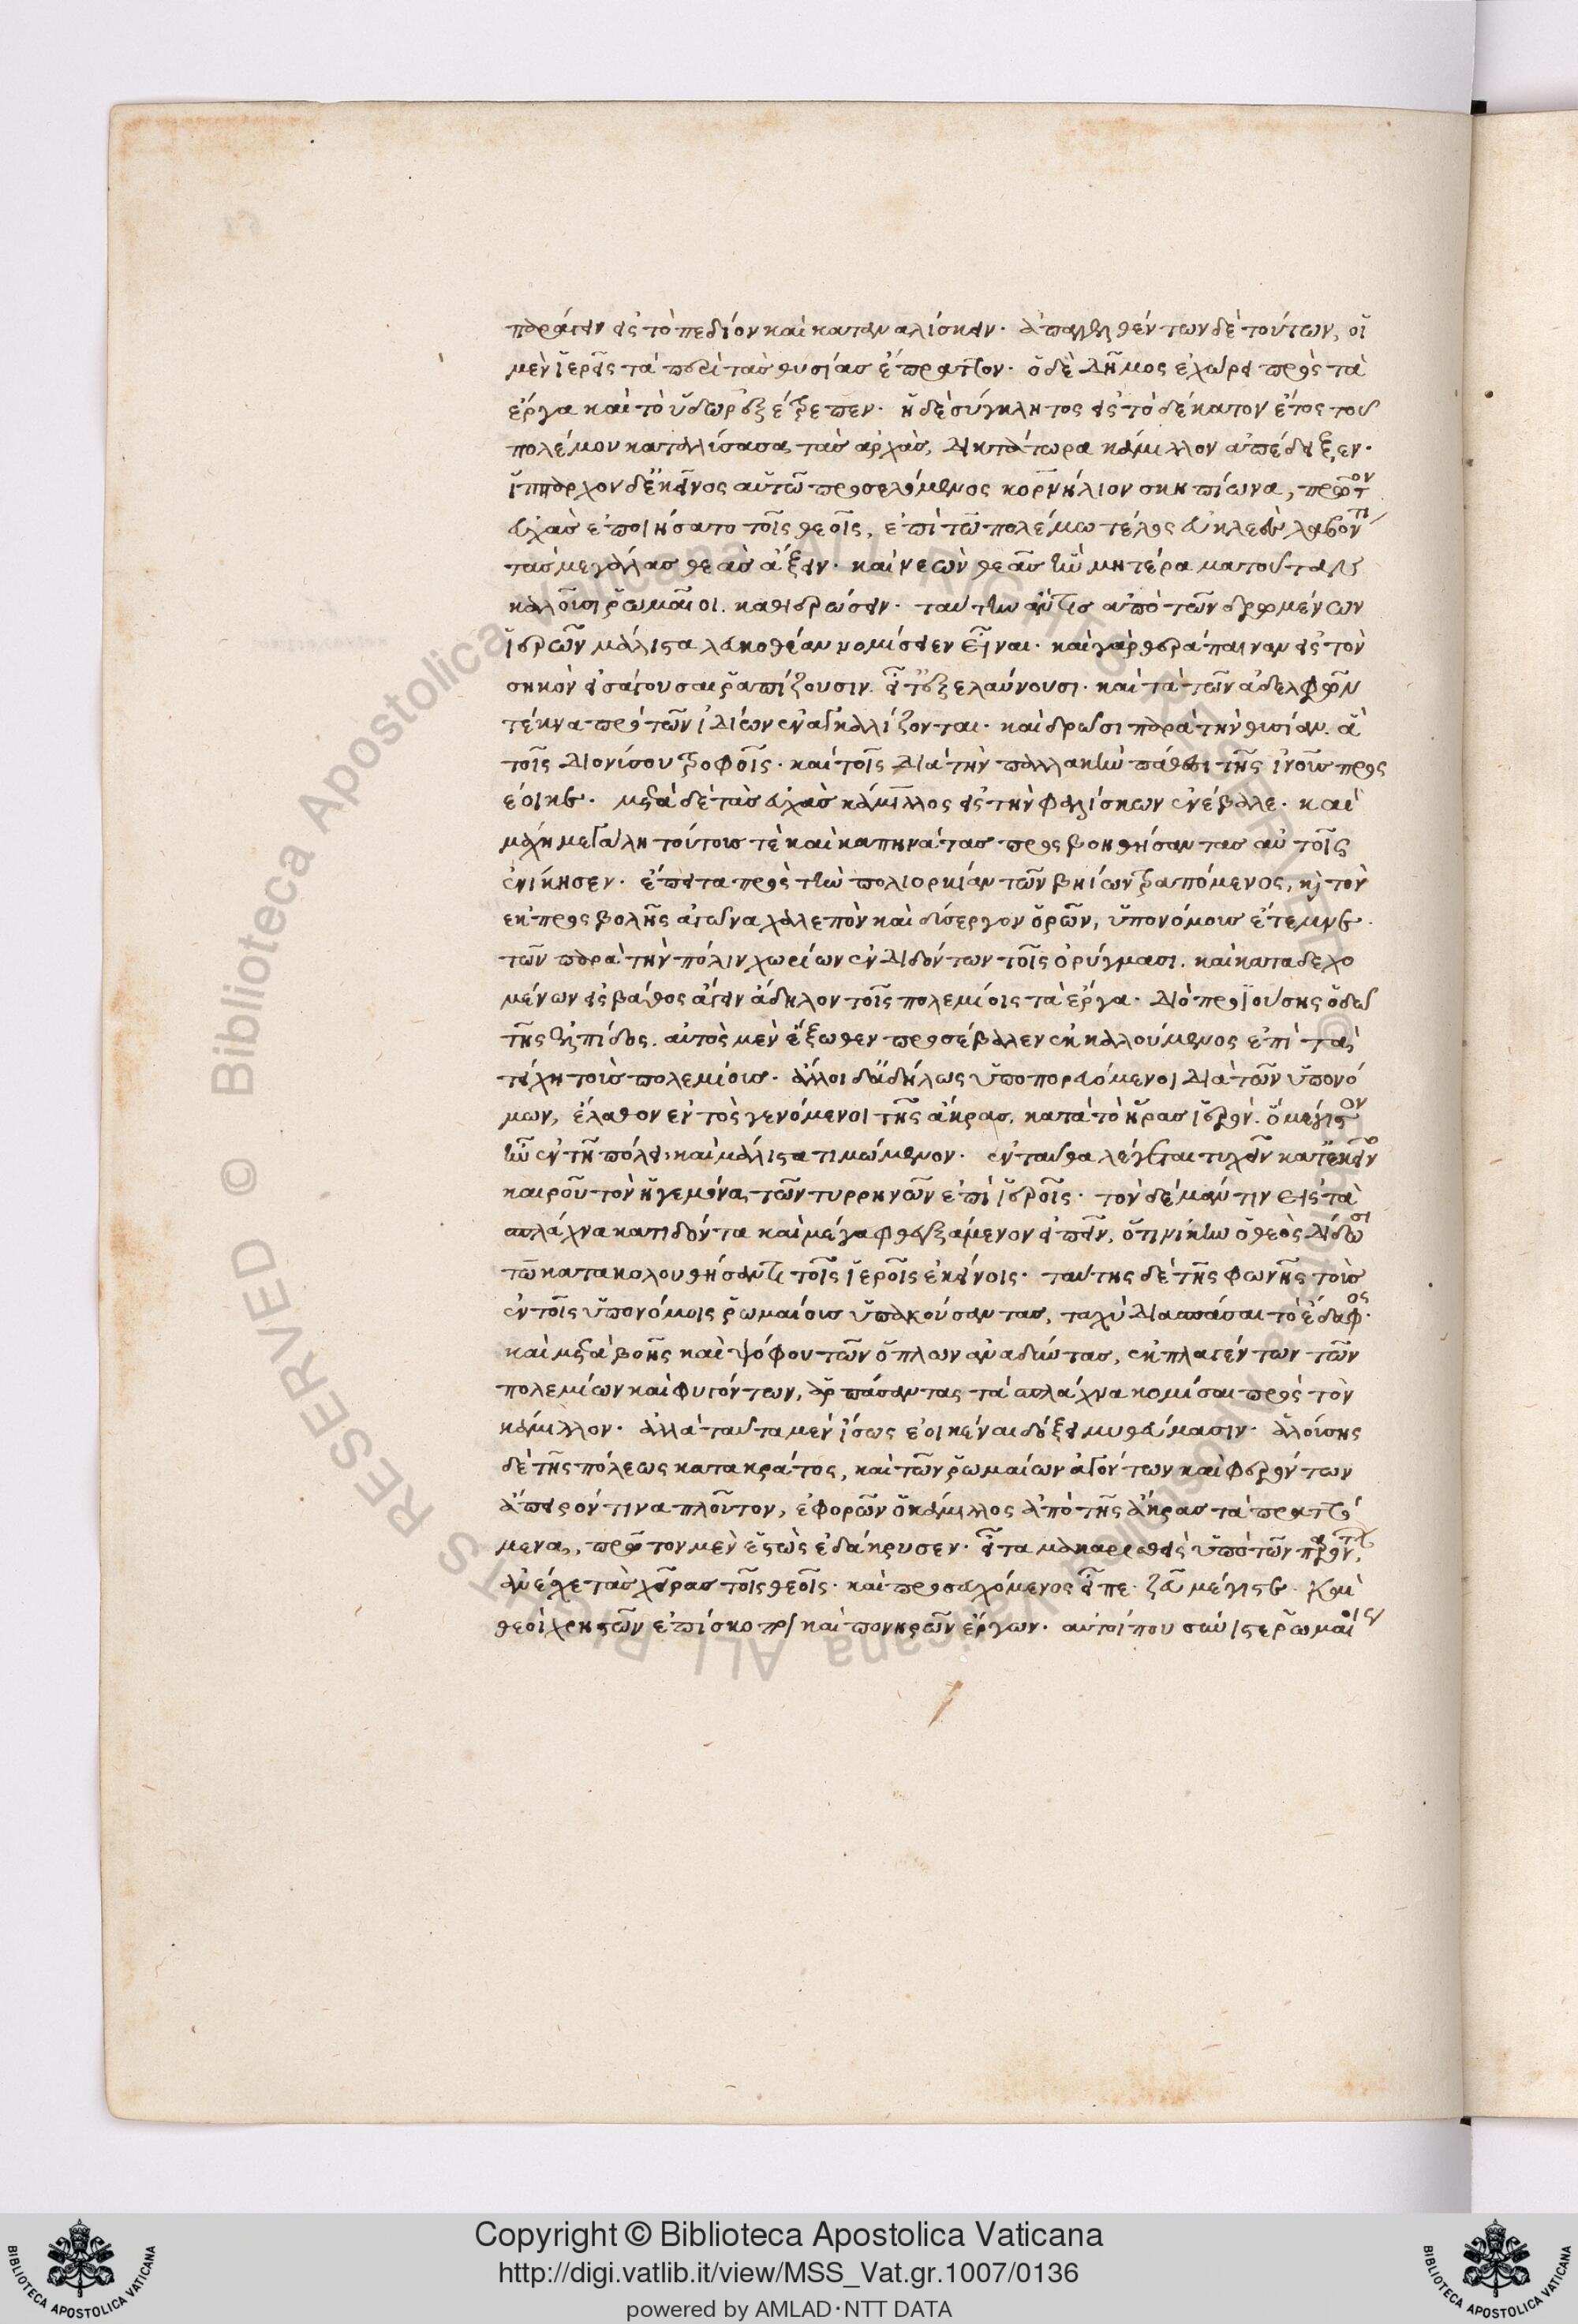 παράγειν εἰς τὸ πεδίον καὶ καταναλίσκειν. ἀπαγγελθέντων δὲ τούτων, οἱ
μὲν ἱερεῖς τὰ περὶ τὰς θυσίας ἔπραττον. ὁ δὲ δῆμος ἐχώρει πρὸς τὰ
ἔργα καὶ τὸ ὕδωρ ἐξέτρεπεν. ἡ δὲ σύγκλητος εἰς τὸ δέκατον ἔτος τοῦ
πολέμου καταλύσασα τὰς ἀρχὰς, δικτάτωρα κάμιλλον ἀπέδειξεν.
ἵππαρχον δ' ἐκεῖνος αὑτῶ προσελόμενος κορνήλιον σκηπίωνα, πρῶτον
εὐχὰς ἐποιήσατο τοῖς θεοῖς, ἐπὶ τῶ πολέμω τέλος εὐκλεὲς λαβόντι
τὰς μεγάλας θέας ἄξειν. καὶ νεὼν θεᾶς ἣν μητέρα ματοῦταν
καλοῦσι ῥωμαῖοι. καθιερώσειν. ταύτην ἄν τις ἀπὸ τῶν δρωμένων
ἱερῶν μάλιστα λευκοθέαν νομίσειεν εἶναι. καὶ γὰρ θεράπαιναν εἰς τὸν
σηκὸν εἰσάγουσαι ῥαπίζουσιν. εἶτ' ἐξελαύνουσι. καὶ τὰ τῶν ἀδελφῶν
τέκνα πρὸ τῶν ἰδίων ἐναγκαλίζονται. καὶ δρῶσι παρὰ τὴν θυσίαν. ἃ
τοῖς διονύσου τροφοῖς. καὶ τοῖς διὰ τὴν παλλακὴν πάθεσι τῆς ἰνοῦς προς
έοικε. μετὰ δὲ τὰς εὐχὰς κάμιλλος εἰς τὴν φαλίσκων ἐνέβαλε. καὶ
μάχη μεγάλη τούτους τὲ καὶ καπηνάτας προσβοηθήσαντας αὐτοῖς
ἐνίκησεν. ἔπειτα πρὸς τὴν πολιορκίαν τῶν βηίων τραπόμενος, καὶ τὸν
ἐκ προσβολῆς ἀγῶνα χαλεπὸν καὶ δύσεργον ὁρῶν, ὑπονόμους ἔτεμνε.
τῶν παρὰ τὴν πόλιν χωρίων ἐνδιδόντων τοῖς ὀρύγμασι. καὶ καταδεχο
μένων εἰς βάθος ἄγειν ἄδηλον τοῖς πολεμίοις τὰ ἔργα. διὸ προϊούσης ὁδῶ
τῆς ἐλπίδος. αὐτὸς μὲν ἔξωθεν προσέβαλεν ἐκκαλούμενος ἐπὶ τὰ
τείχη τοὺς πολεμίους. ἄλλοι δ' ἀδήλως ὑποπορευόμενοι διὰ τῶν ὑπονό
μων, ἔλαθον ἐντὸς γενόμενοι τῆς ἄκρας, κατὰ τὸ ἥρας ἱερὸν. ὃ μέγιστον
ἦν ἐν τῆ πόλει. καὶ μάλιστα τιμώμενον. ἐνταῦθα λέγεται τυχεῖν κατ' ἐκεῖνο
καιροῦ τὸν ἡγεμόνα τῶν τυρρηνῶν ἐπὶ ἱεροῖς. τὸν δὲ μάντιν εἰς τὰ
σπλάχνα κατιδόντα καὶ μέγα φθεγξάμενον εἰπεῖν, ὅτι νίκην ὁ θεὸς δίδωσι
τῶ κατακολουθήσαντι τοῖς ἱεροῖς ἐκείνοις. ταύτης δὲ τῆς φωνῆς τοὺς
ἐν τοῖς ὑπονόμοις ῥωμαίους ὑπακούσαντας, ταχὺ διασπάσαι τὸ ἔδαφος.
καὶ μετὰ βοῆς καὶ ψόφου τῶν ὅπλων ἀναδύντας, ἐκπλαγέντων τῶν
πολεμίων καὶ φυγόντων, ἁρπάσαντας τὰ σπλάχνα κομίσαι πρὸς τὸν
κάμιλλον. ἀλλὰ ταῦτα μὲν ἴσως ἐοικέναι δόξει μυθεύμασιν. ἁλούσης
δὲ τῆς πόλεως κατακράτος, καὶ τῶν ῥωμαίων ἀγόντων καὶ φερόντων
ἄπειρόν τινα πλοῦτον, ἐφορῶν ὁ κάμιλλος ἀπὸ τῆς ἄκρας τὰ πραττό
μενα, πρῶτον μὲν ἑστὼς ἐδάκρυσεν. εἶτα μακαρισθεὶς ὑπὸ τῶν παρόντων,
ἀνέσχε τὰς χεῖρας τοῖς θεοῖς. καὶ προσευχόμενος εἶπε. ζεῦ μέγιστε. καὶ
θεοὶ χρηστῶν ἐπίσκοποι καὶ πονηρῶν ἔργων. αὐτοί που σύνιστε ῥωμαίοις
Copyright © Biblioteca Apostolica Vaticana
http://digi.vatlib.it/view/MSS_Vat.gr.1007/0136
powered by AMLAD·NTT DATA